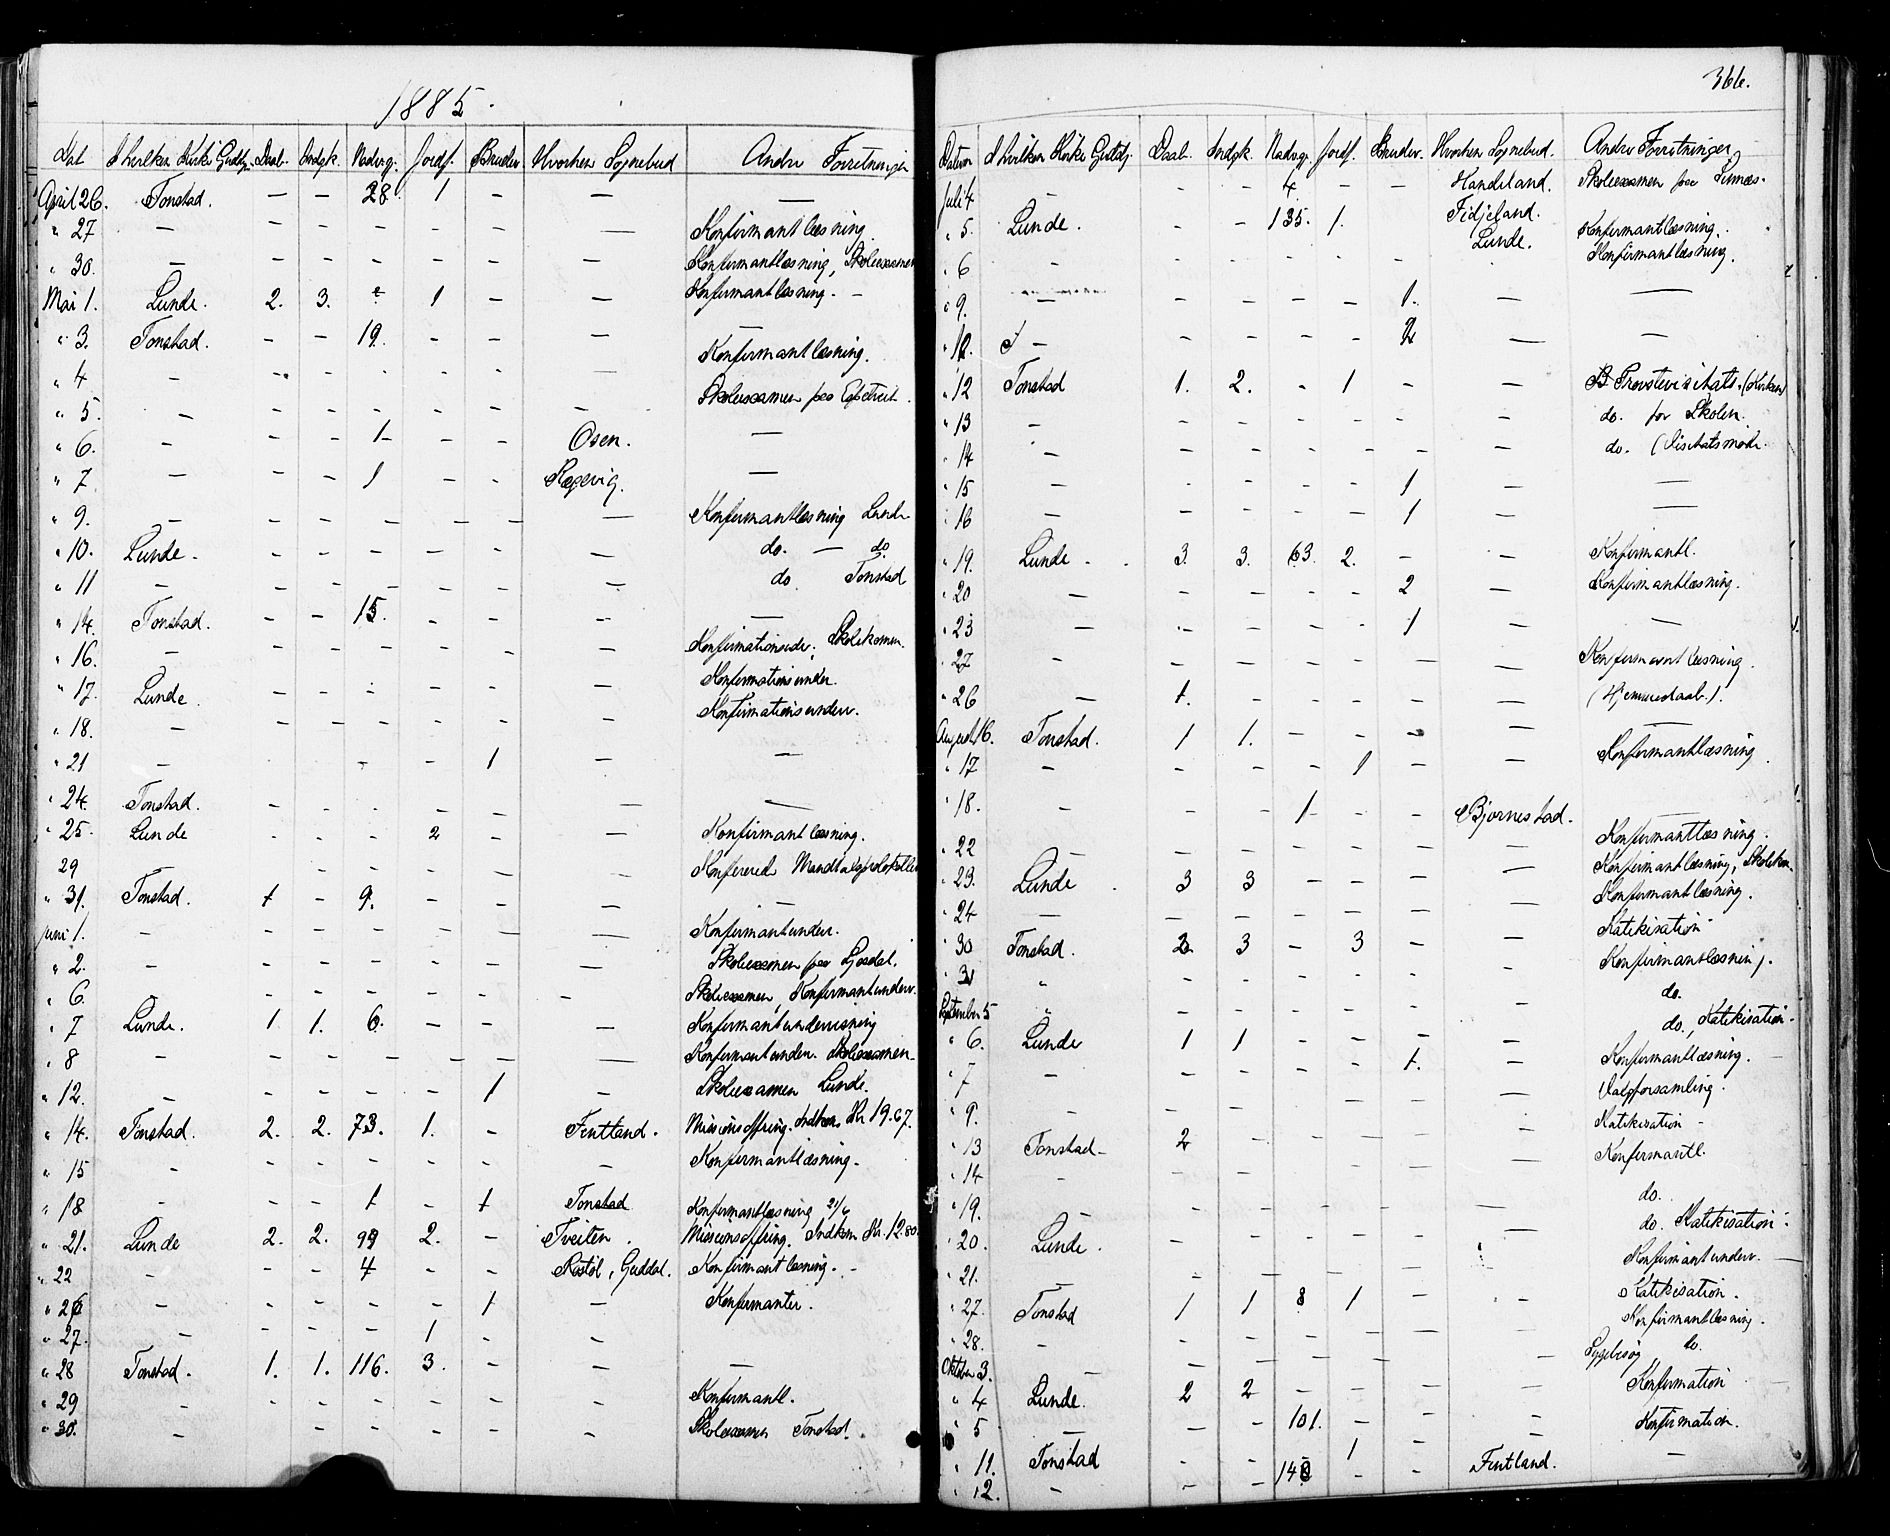 1885.
Dat I hvilken Kirke Gudstj. Daab. Indgk. Nadvg. Jordf. Brudev. Hvorhen Sognebud Andre Forretninger
April 26. Tonstad. — — 28 1 — — —
" 27 — — — — — — — Konfirmantlæsning.
" 30. — — — — — — — Konfirmantlæsning, Skoleexamen
Mai 1. Lunde. 2. 3. 1 — — Konfirmantlæsning. —
" 3. Tonstad. — — 19. — — — —
" 4 — — — — — — — Konfirmantlæsning.
" 5. — — — — — — — Skoleexamen paa
" 6. — — — 1 — — Osen. —
" 7 — — — 1 — — —
" 9. — — — — — — — Konfirmantlæsning Lunde
" 10. Lunde. — — — — — — do. — do.
" 11 — — — — — — — do Tonstad
" 14. Tonstad. — — 15. — — — —
" 16. — — — — — — — Skolekomm.
" 17. Lunde — — — — — — Konfirmationsunder.
" 18. — — — — — — — Konfirmationsunderv.
" 21 — — — — — 1 — —
" 24. Tonstad. — — — — — — —
" 25. Lunde — — — 2 — — Konfirmantlæsning.
29 — — — — — — Konferered Mandtalsprotokoller
" 31. Tonstad. 1 — 9. — — — —
Juni 1. — — — — — — — Konfirmantunder.
" 2. — — — — — — — Skoleexamen paa
" 6. — — — — — — — Skoleexamen, Konfirmantunderv.
" 7 Lunde. 1 1. 6. — — — Konfirmantundervisning
" 8 — — — — — — — Konfirmantunder. Skoleexamen
" 12. — — — — — 1 — Skoleexamen Lunde.
" 14. Tonstad. 2. 2. 73. 1. — Fintland. Missionsoffring. Indkom Kr 19.67.
" 15 — — — — — — — Konfirmantlæsning.
" 18 — — — 1 — 1 Tonstad Konfirmantlæsning 21/6
" 21. Lunde 2. 2. 99 2. — Tveiten. Missionsoffring. Indkom Kr. 12.80.
" 22 — — — 4 — — Røstøl, Guddal. Konfirmantlæsning. —
" 26 — — — — — 1 — Konfirmanter.
" 27. — — — — 1 — —
" 28 Tonstad. 1. 1. 116. 3. — — —
" 29 — — — — — — — Konfirmantl.
" 30. — — — — — — — Skoleexamen Tonstad.
366.
Datum I hvilken Kirke Gstj. Daab. Indgk. Nadvg. Jordf. Brudev. Hvorhen Sognebud. Andre Forretninger
Juli 4 — — — 4. — — Handeland. Skoleexamen paa
" 5. Lunde. — — 135. 1. Fidjeland. Lunde. Konfirmantlæsning.
" 6 — — — — — — Konfirmantlæsning.
" 9. — — — — — 1. — —
— — — — — 2 — —
" 12 Tonstad 1. 2. — 1 — — Provstevisitats. (Kirken)
" 13 — — — — — — — do. for Skolen.
" 14 — — — — — — — do. (Visitatsmøde.
" 15 — — — — — 1 — —
" 16 — — — — — 1 — —
" 19. Lunde. 3. 3. 63. 2. — — Konfirmantl.
" 20 — — — — — 2 — Konfirmantlæsning.
" 23 — — — — — 1 — —
" 27 — — — — — — — Konfirmantlæsning.
" 26 — 1. — — — — — (Hjemmedaab.)
August 16. Tonstad. 1 1. — — — — —
" 17 — — — — 1 — — Konfirmantlæsning.
" 18. — — — 1 — — Bjørnestad. —
" 22 — — — — — — — Konfirmantlæsning.
" 23. Lunde. 3 3 — — — — Konfirmantlæsning, Skolekom.
" 24 — — — — — — — Konfirmantlæsning.
" 30 Tonstad. 2 3 — 3 — — Katekisation
" 31 " — — — — — — Konfirmantlæsning.
September 5 " — — — — — — do.
" 6. Lunde 1 1 — — — — do., Katekisation.
" 7 — — — — — 1. — Konfirmantlæsning.
" 9. — — — — — — — Valgforsamling.
" 13 Tonstad — 2 — — — — — Katekisation —
" 14 — — — — — — — Konfirmantl.
" 19. — — — — — — — do.
" 20. Lunde. — — — — — — do. Katekisation.
" 21. — — — — — — — Konfirmantunderv. —
" 27. Tonstad 1 1 8 1 — — Katekisation.
" 28. — — — — — — — Konfirmantlæsning.
Oktober 3. — — — — — — — Sygebesøg do.
" 4 Lunde. 2 2 — — — — Konfirmation
" 5 — — — 101. — — — Konfirmation.
" 11. Tonstad — — 140 1 — Fintland. —
" 12. — — — — —